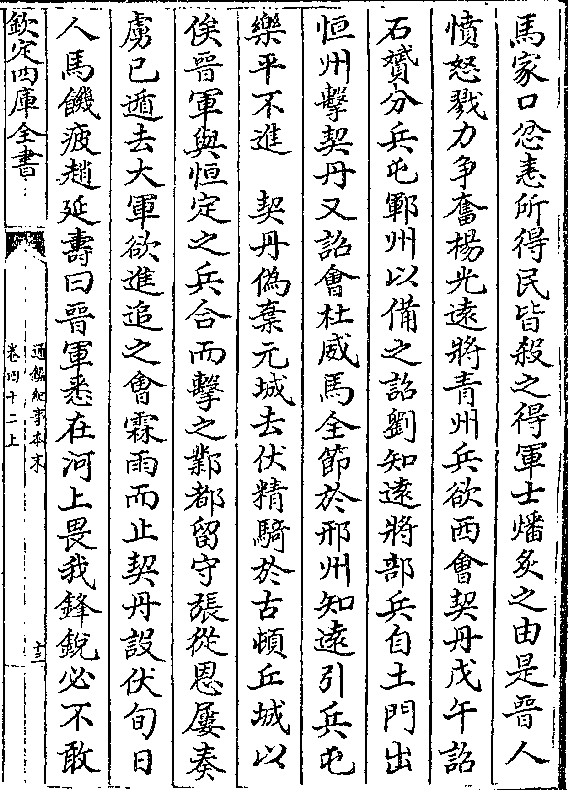 馬家口忿恚所得民皆殺之得軍士燔炙之由是晉人
憤怒戮力争奮楊光遠將青州兵欲西會契丹戊午詔
石贇分兵屯鄆州以備之詔劉知遠將部兵自土門出
恒州擊契丹又詔會杜威馬全節於邢州知遠引兵屯
樂平不進　契丹偽棄元城去伏精騎於古頓丘城以
俟晉軍與恒定之兵合而擊之鄴都留守張從恩屢奏
虜已遁去大軍欲進追之會霖雨而止契丹設伏旬日
人馬饑疲趙延壽曰晉軍悉在河上畏我鋒銳必不敢
欽定四庫全書
通鑑紀事本末
卷四十二上